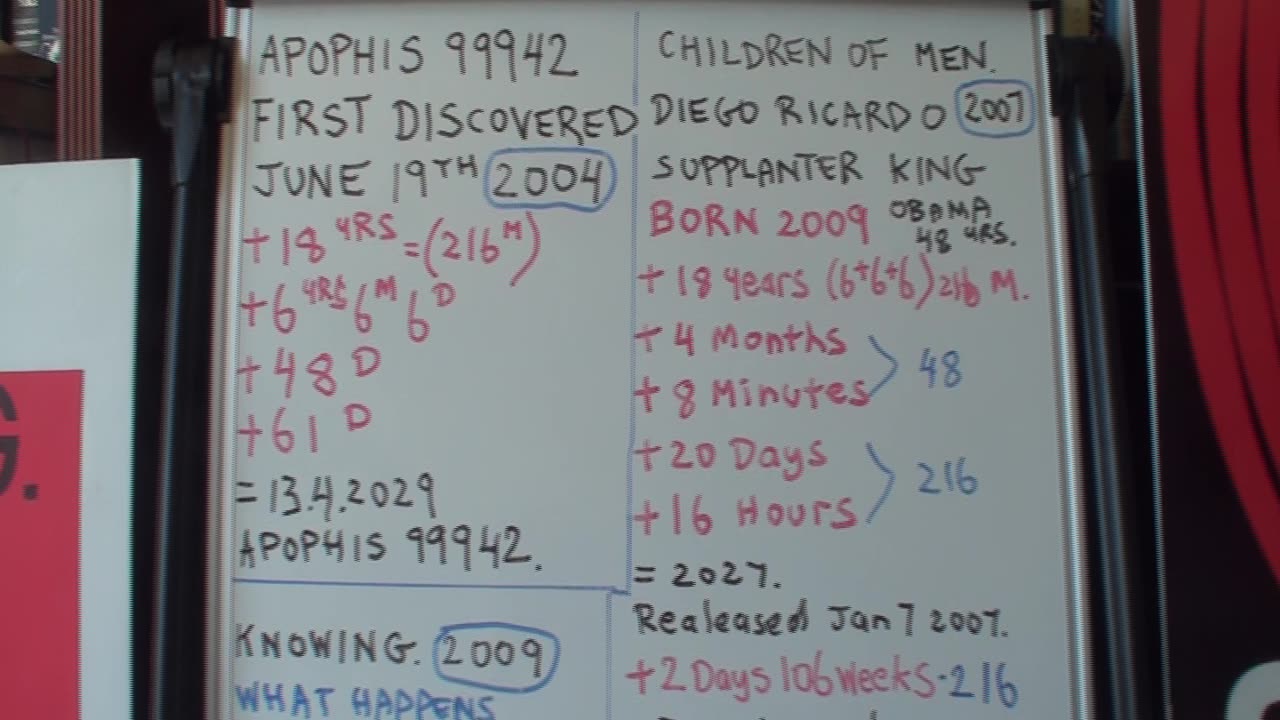 APOPHIS 99942
FIRST DISCOVERED
JUNE 19TH 2004
+18 YRS = (216M)
+6YRS 6M 6D
+48 D
+61 D
= 13.4.2029
APOPHIS 99942.
KNOWING. 2009
WHAT HAPPENS
CHILDREN OF MEN.
DIEGO RICARDO 2007
SUPPLANTER KING
BORN 2009 OBAMA
48 YRS.
+ 18 years (6+6+6) 216 M.
+ 4 Months
+ 8 Minutes
48
+20 Days
+16 Hours
216
= 2027.
Realeased Jan 7 2007.
+2 Days 106 weeks - 216
G.